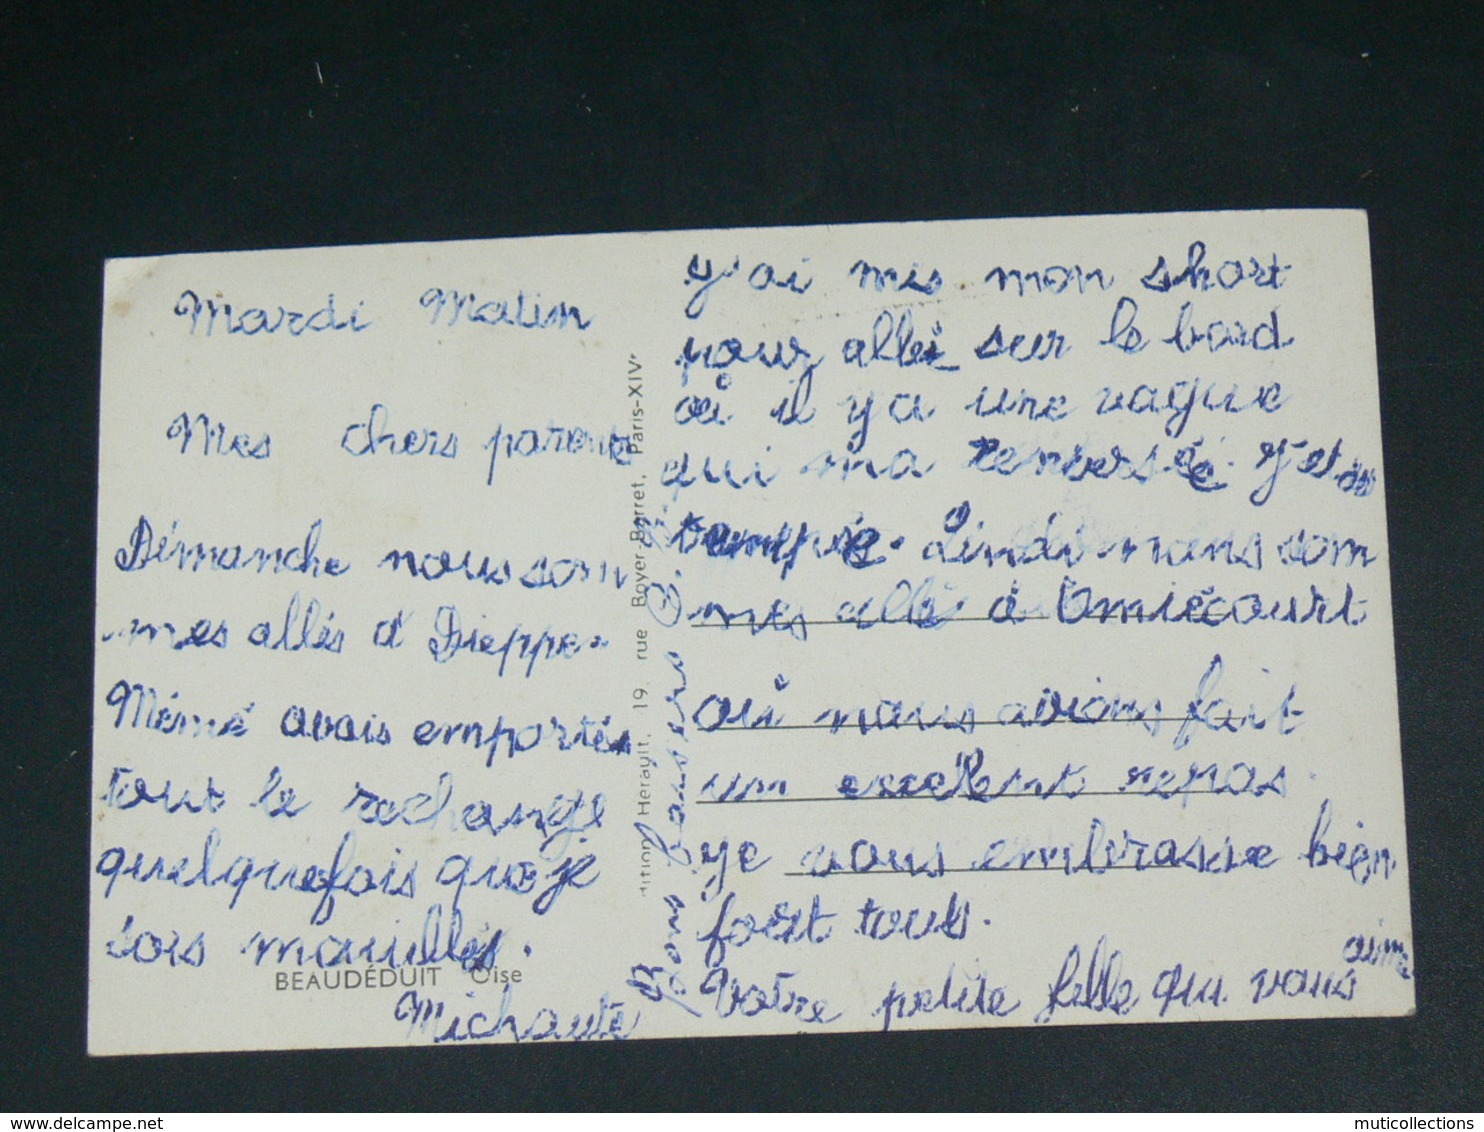 Mardi Matin
Mes chers parents
Dimanche nous som
mes allés à Dieppe.
Mémé avais emportés
tout le rechange
quelquefois que je
sois mouillés.
BEAUDÉDUIT Oise
dition Herault, 19, rue Boyer-Barret, Paris-XIVe
Bons baisers
j'ai mis mon short
pour allei sur le bord
où il y a une vague
qui ma renversée j'et
trempée. Lindi nous som
mes allé à Omiécourt
où nous avions fait
um excelent repas.
je vous embrasse bien
fort tous.
Votre petite fille qui vous aime
muticollections